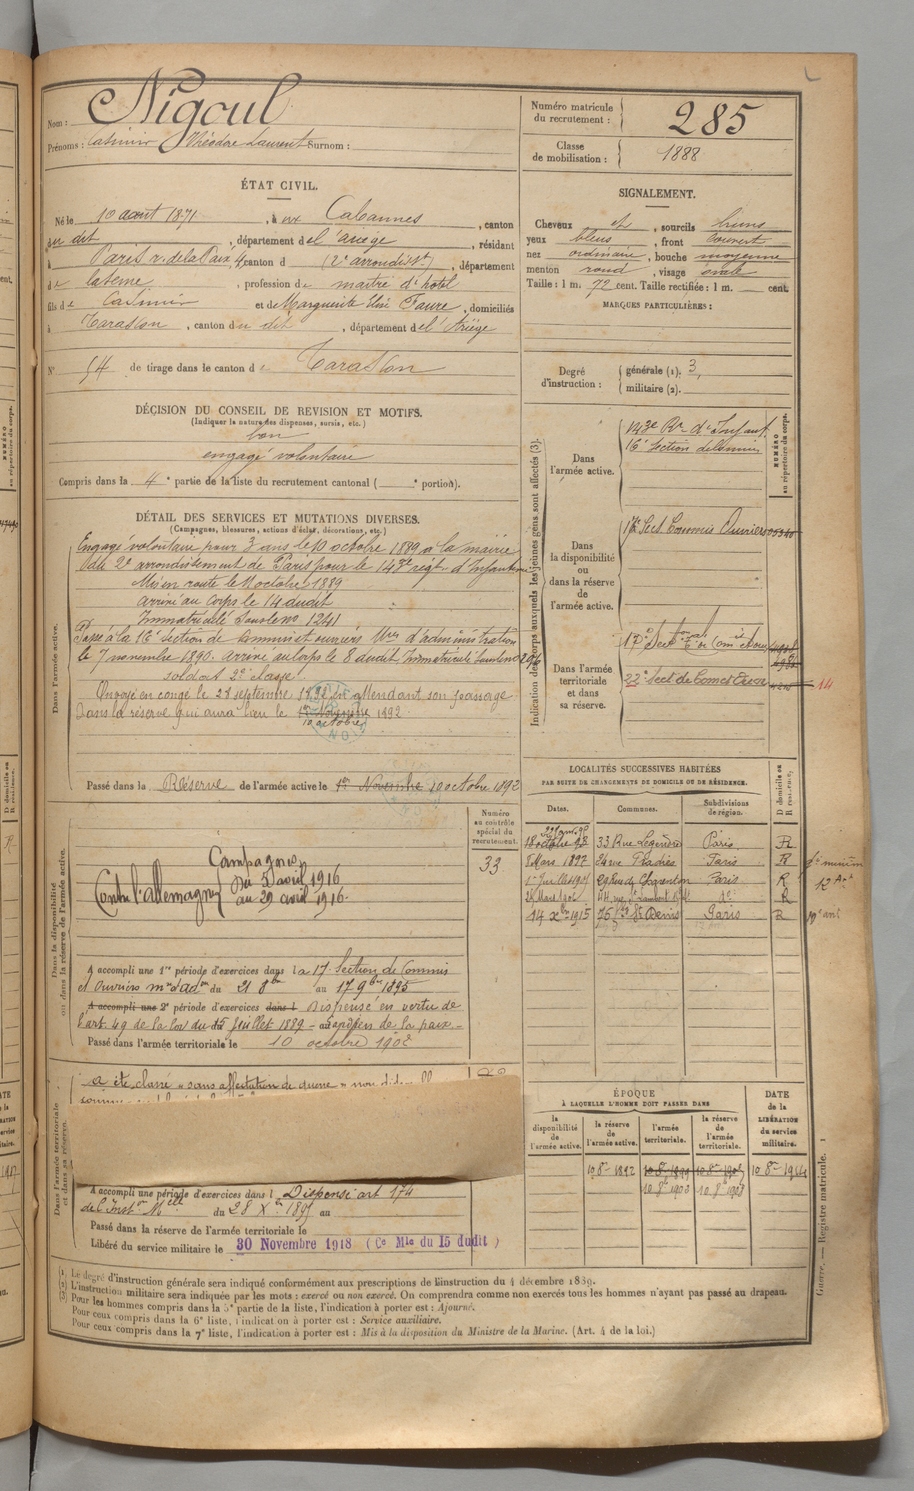 Nom : Nigoul
Prénoms : Casimir Théodore Laurent Surnom :
Numéro matricule du recrutement : 285
Classe de mobilisation : 1888
ÉTAT CIVIL.
Né le 10 août 1871, à Cabannes, canton
dudit, département de l'ariège, résidant
à Paris r. de la Paix 4, canton d (2e arrondisst), département
de la Seine, profession de maître d'hôtel
fils de Casimir et de Marguerite Faure, domiciliés
à Tarascon, canton du dit, département de l'Ariège
N° 54 de tirage dans le canton de Tarascon
SIGNALEMENT.
Cheveux et, sourcils bruns
yeux bleus, front couvert
nez ordinaire, bouche moyenne
menton rond, visage ovale
Taille : 1 m. 72 cent. Taille rectifiée : 1 m. cent.
MARQUES PARTICULIÈRES :
Degré d'instruction : générale (1). 3,
militaire (2).
DÉCISION DU CONSEIL DE REVISION ET MOTIFS.
(Indiquer la nature des dispenses, sursis, etc.)
bon
engagé volontaire
Compris dans la 4e partie de la liste du recrutement cantonal ( e portion).
DÉTAIL DES SERVICES ET MUTATIONS DIVERSES.
(Campagnes, blessures, actions d'éclat, décorations, etc.)
Dans l'armée active.
Engagé volontaire pour 3 ans le 10 octobre 1889 à la mairie
du 2e arrondissement de Paris pour le 143e régt d'Infanterie
Mis en route le 11 octobre 1889
arrivé au Corps le 14 dudit
Immatriculé sous le no 1241
Passé à la 16e section de commis et ouvriers Mres d'administration
le 7 novembre 1890. arrivé au corps le 8 dudit Immatriculé sous le no
soldat 2e classe
Envoyé en congé le 21 septembre 1892 en attendant son passage
dans la réserve qui aura lieu le 1er Novembre 1892
10 octobre
Passé dans la Réserve de l'armée active le 1er Novembre 10 octobre 1892
Indication des corps auxquels les jeunes gens sont affectés (3).
NUMÉRO au répertoire du corps.
Dans l'armée active.
143e Rt d'Infant.
16e Section
Dans la disponibilité ou dans la réserve de l'armée active.
17e Sect Commis Ouvriers
Dans l'armée territoriale et dans sa réserve.
22e Sect de Comis
14
LOCALITÉS SUCCESSIVES HABITÉES
PAR SUITE DE CHANGEMENTS DE DOMICILE OU DE RÉSIDENCE.
Dates. Communes. Subdivisions de région. D domicile ou R résidence.
33 Rue Legendre Paris R
8 Mars 1897 24 rue Pradier Paris R
29 Rue de Charenton Paris R
do R
14 xbre 1915 75 fbg St Denis Paris R
Dans la disponibilité ou dans la réserve de l'armée active.
Numéro au contrôle spécial du recrutement.
33
Campagnes
Contre l'allemagne du 5 avril 1916
au 29 avril 1916
A accompli une 1re période d'exercices dans la 17e Section de Commis
et Ouvriers mres d'adon du 21 8bre au 17 9bre 1895
A accompli une 2e période d'exercices dans l Dispensé en vertu de
l'art. 49 de la loi du 15 Juillet 1889 de la paix
Passé dans l'armée territoriale le 10 octobre 1902
Dans l'armée territoriale et dans sa réserve.
a été classé « sans affectation de guerre »
A accompli une période d'exercices dans l Dispensé art 174
de l'Inston Melle du 28 Xbre 1897 au
Passé dans la réserve de l'armée territoriale le
Libéré du service militaire le 30 Novembre 1918 (Ce Mle du 15 dudit)
ÉPOQUE
À LAQUELLE L'HOMME DOIT PASSER DANS
la disponibilité de l'armée active. la réserve de l'armée active. l'armée territoriale. la réserve de l'armée territoriale. DATE de la LIBÉRATION du service militaire.
10 8bre 1892
10 8bre 1902 10 8bre 1908
Guerre. — Registre matricule. 1
(1) Le degré d'instruction générale sera indiqué conformément aux prescriptions de l'instruction du 4 décembre 1889.
(2) L'instruction militaire sera indiquée par les mots : exercé ou non exercé. On comprendra comme non exercés tous les hommes n'ayant pas passé au drapeau.
(3) Pour les hommes compris dans la 5e partie de la liste, l'indication à porter est : Ajourné.
Pour ceux compris dans la 6e liste, l'indication à porter est : Service auxiliaire.
Pour ceux compris dans la 7e liste, l'indication à porter est : Mis à la disposition du Ministre de la Marine. (Art. 4 de la loi.)